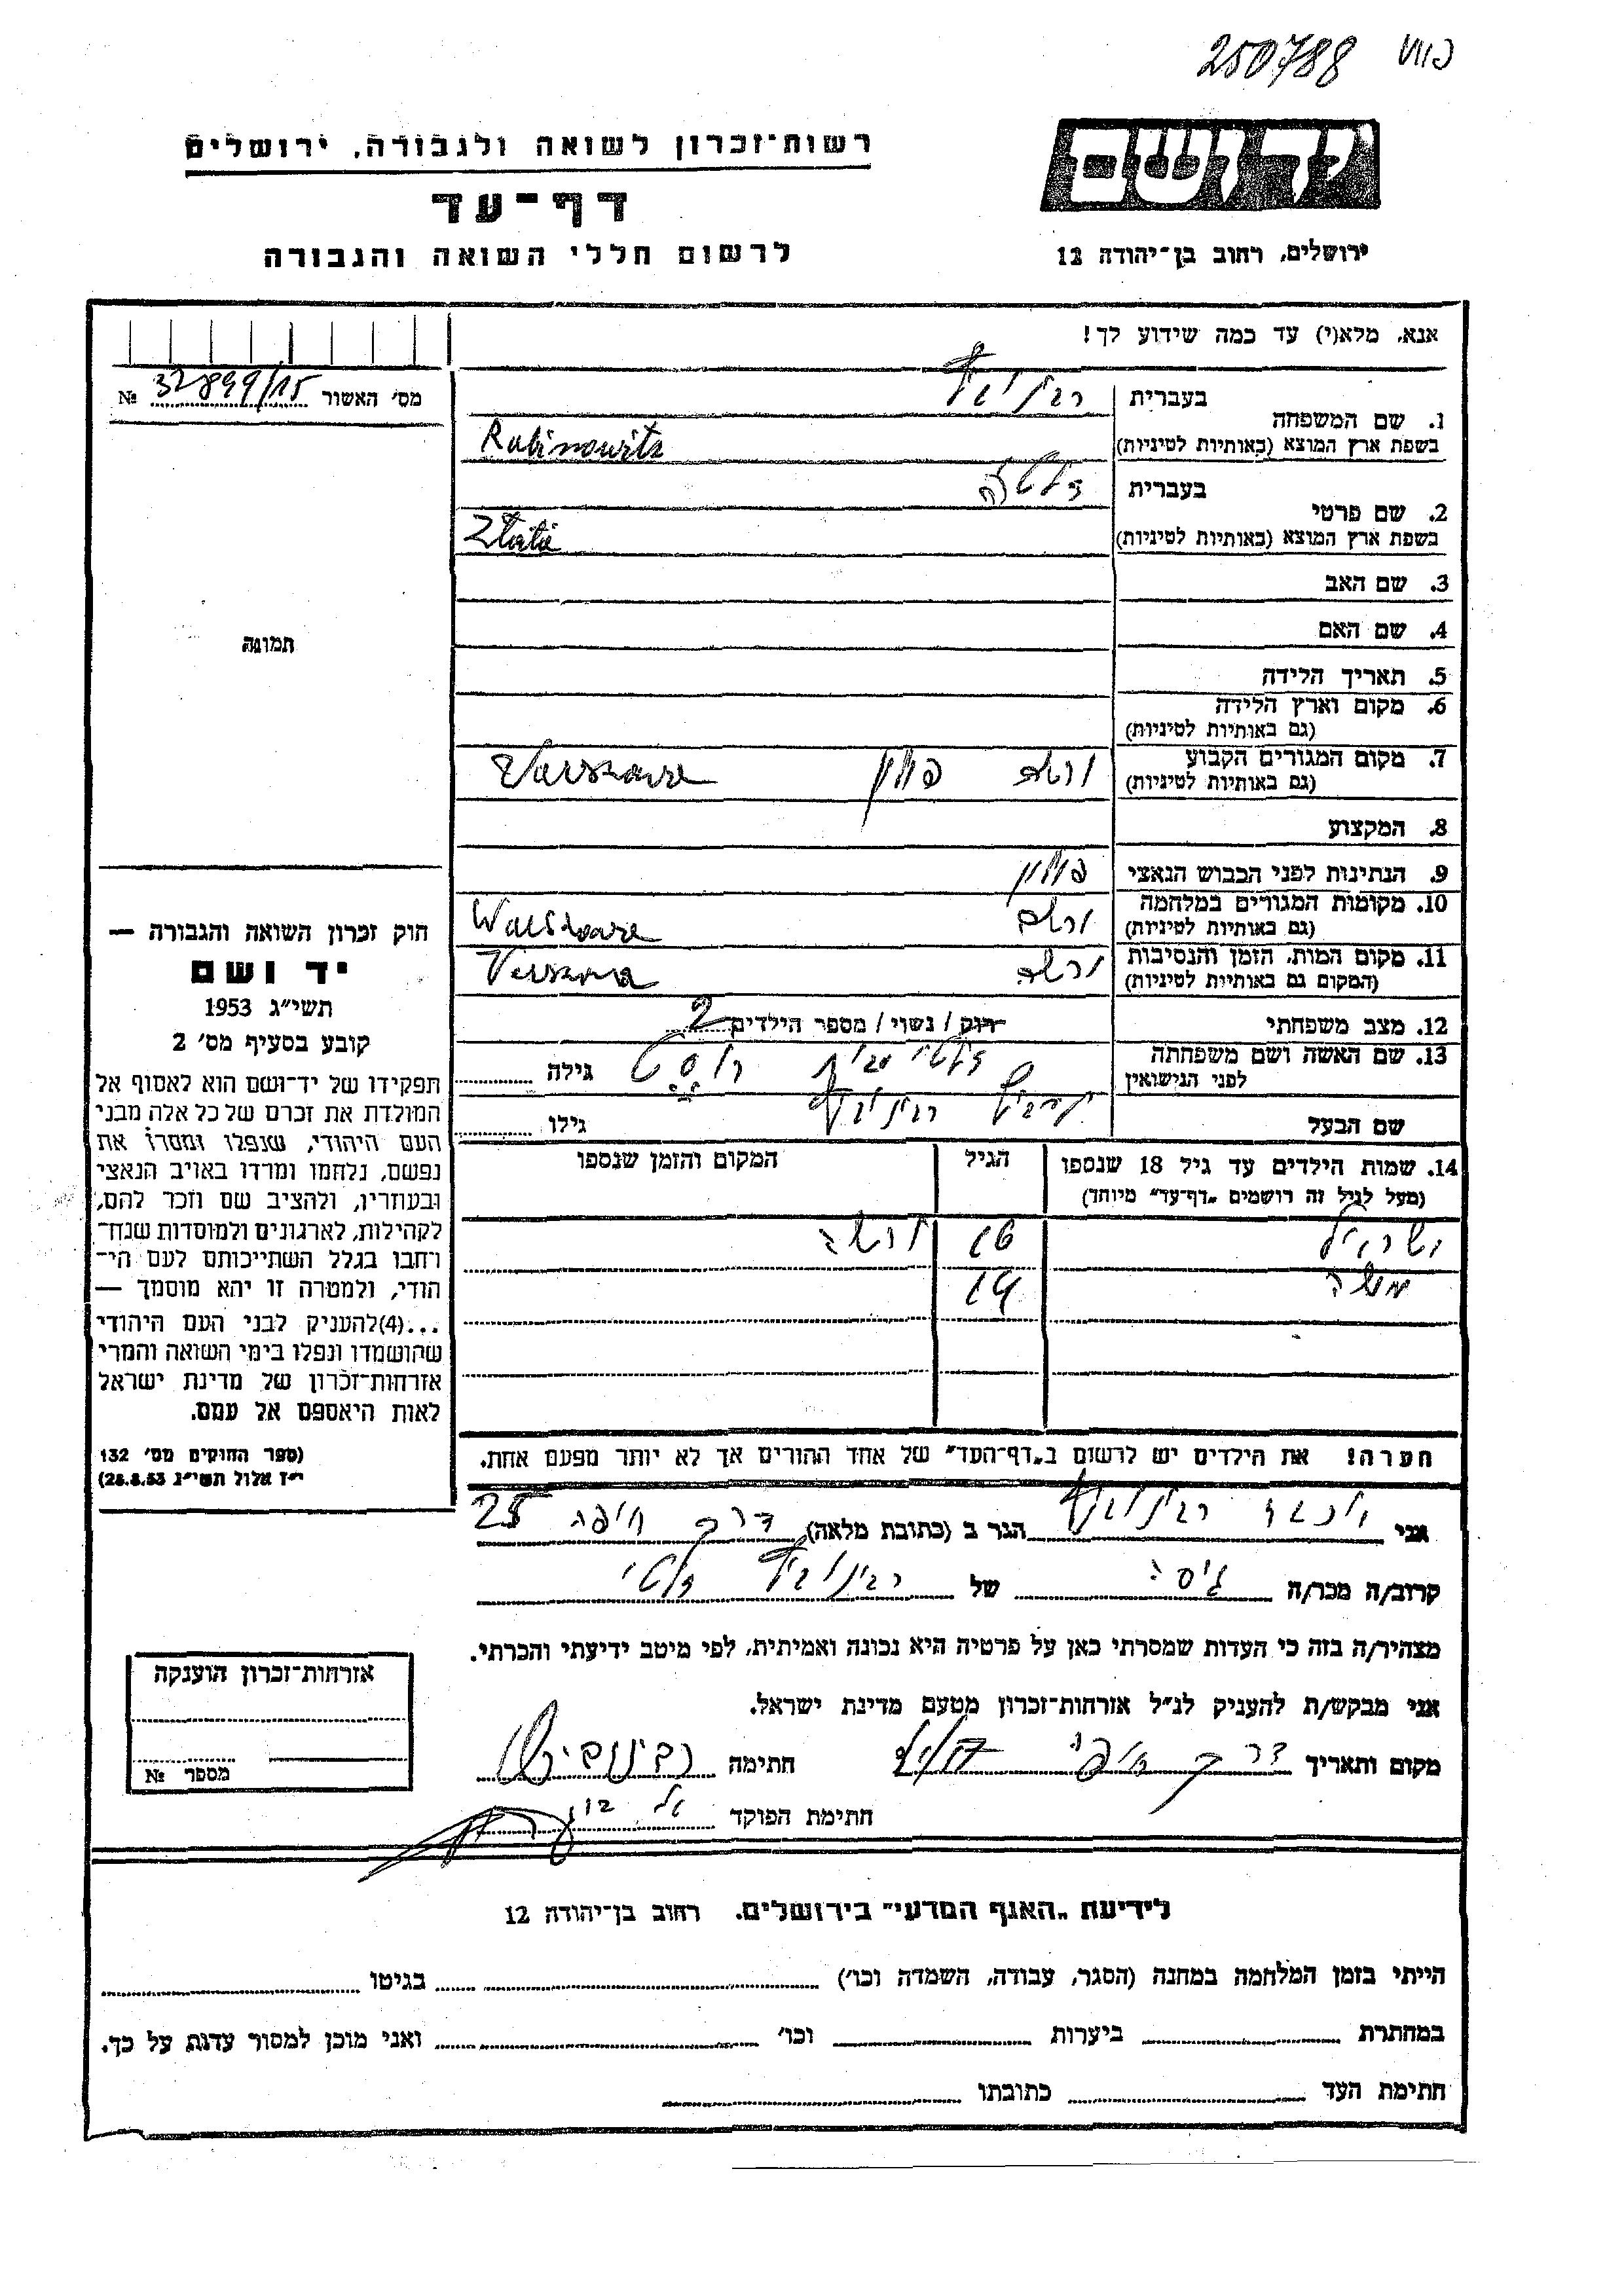 250788
רשות־זכרון לשואה ולגבורה, ירושלים
דף־עד
לרשום חללי השואה והגבורה
יד ושם
ירושלים, רחוב בן־יהודה 12
אנא, מלא(י) עד כמה שידוע לך!
מס׳ האשור 32899/15 №
1. שם המשפחה
בעברית רבינוביץ
בשפת ארץ המוצא (באותיות לטיניות) Rabinowitz
2. שם פרטי
בעברית זלטה
בשפת ארץ המוצא (באותיות לטיניות) Zlata
3. שם האב
4. שם האם
5. תאריך הלידה
6. מקום וארץ הלידה
(גם באותיות לטיניות)
7. מקום המגורים הקבוע ורשה פולין
(גם באותיות לטיניות)
8. המקצוע
9. הנתינות לפני הכבוש הנאצי פולין
10. מקומות המגורים במלחמה ורשה
(גם באותיות לטיניות)
11. מקום המות, הזמן והנסיבות ורשה
(המקום גם באותיות לטיניות)
12. מצב משפחתי רוק / נשוי / מספר הילדים 2
13. שם האשה ושם משפחתה
לפני הנישואין גילה
שם הבעל רבינוביץ גילו
14. שמות הילדים עד גיל 18 שנספו הגיל המקום והזמן שנספו
(מעל לגיל זה רושמים „דף־עד״ מיוחד)
ישראל 16 ורשה
משה 14
הערה! את הילדים יש לרשום ב„דף־העד״ של אחד ההורים אך לא יותר מפעם אחת.
תמונה
חוק זכרון השואה והגבורה —
יד ושם
תשי״ג 1953
קובע בסעיף מס׳ 2
תפקידו של יד־ושם הוא לאסוף אל
המולדת את זכרם של כל אלה מבני
העם היהודי, שנפלו ומסרו את
נפשם, נלחמו ומרדו באויב הנאצי
ובעוזריו, ולהציב שם וזכר להם,
לקהילות, לארגונים ולמוסדות שנח־
רבו בגלל השתייכותם לעם הי־
הודי, ולמטרה זו יהא מוסמך —
...(4)להעניק לבני העם היהודי
שהושמדו ונפלו בימי השואה והמרי
אזרחות־זכרון של מדינת ישראל
לאות היאספם אל עמם.
(ספר החוקים מס׳ 132
י״ז אלול תשי״ג 28.8.53)
אני רבינוביץ הגר ב (כתובת מלאה) דרך חיפה 25
קרוב/ה מכר/ה גיסה של רבינוביץ זלטי
מצהיר/ה בזה כי העדות שמסרתי כאן על פרטיה היא נכונה ואמיתית, לפי מיטב ידיעתי והכרתי.
אני מבקש/ת להעניק לנ״ל אזרחות־זכרון מטעם מדינת ישראל.
מקום ותאריך דרך חיפה חתימה רבינוביץ
חתימת הפוקד
אזרחות־זכרון הוענקה
מספר №
לידיעת „האגף המדעי״ בירושלים, רחוב בן־יהודה 12
הייתי בזמן המלחמה במחנה (הסגר, עבודה, השמדה וכו׳) בגיטו
במחתרת ביערות וכו׳ ואני מוכן למסור עדות על כך.
חתימת העד כתובתו